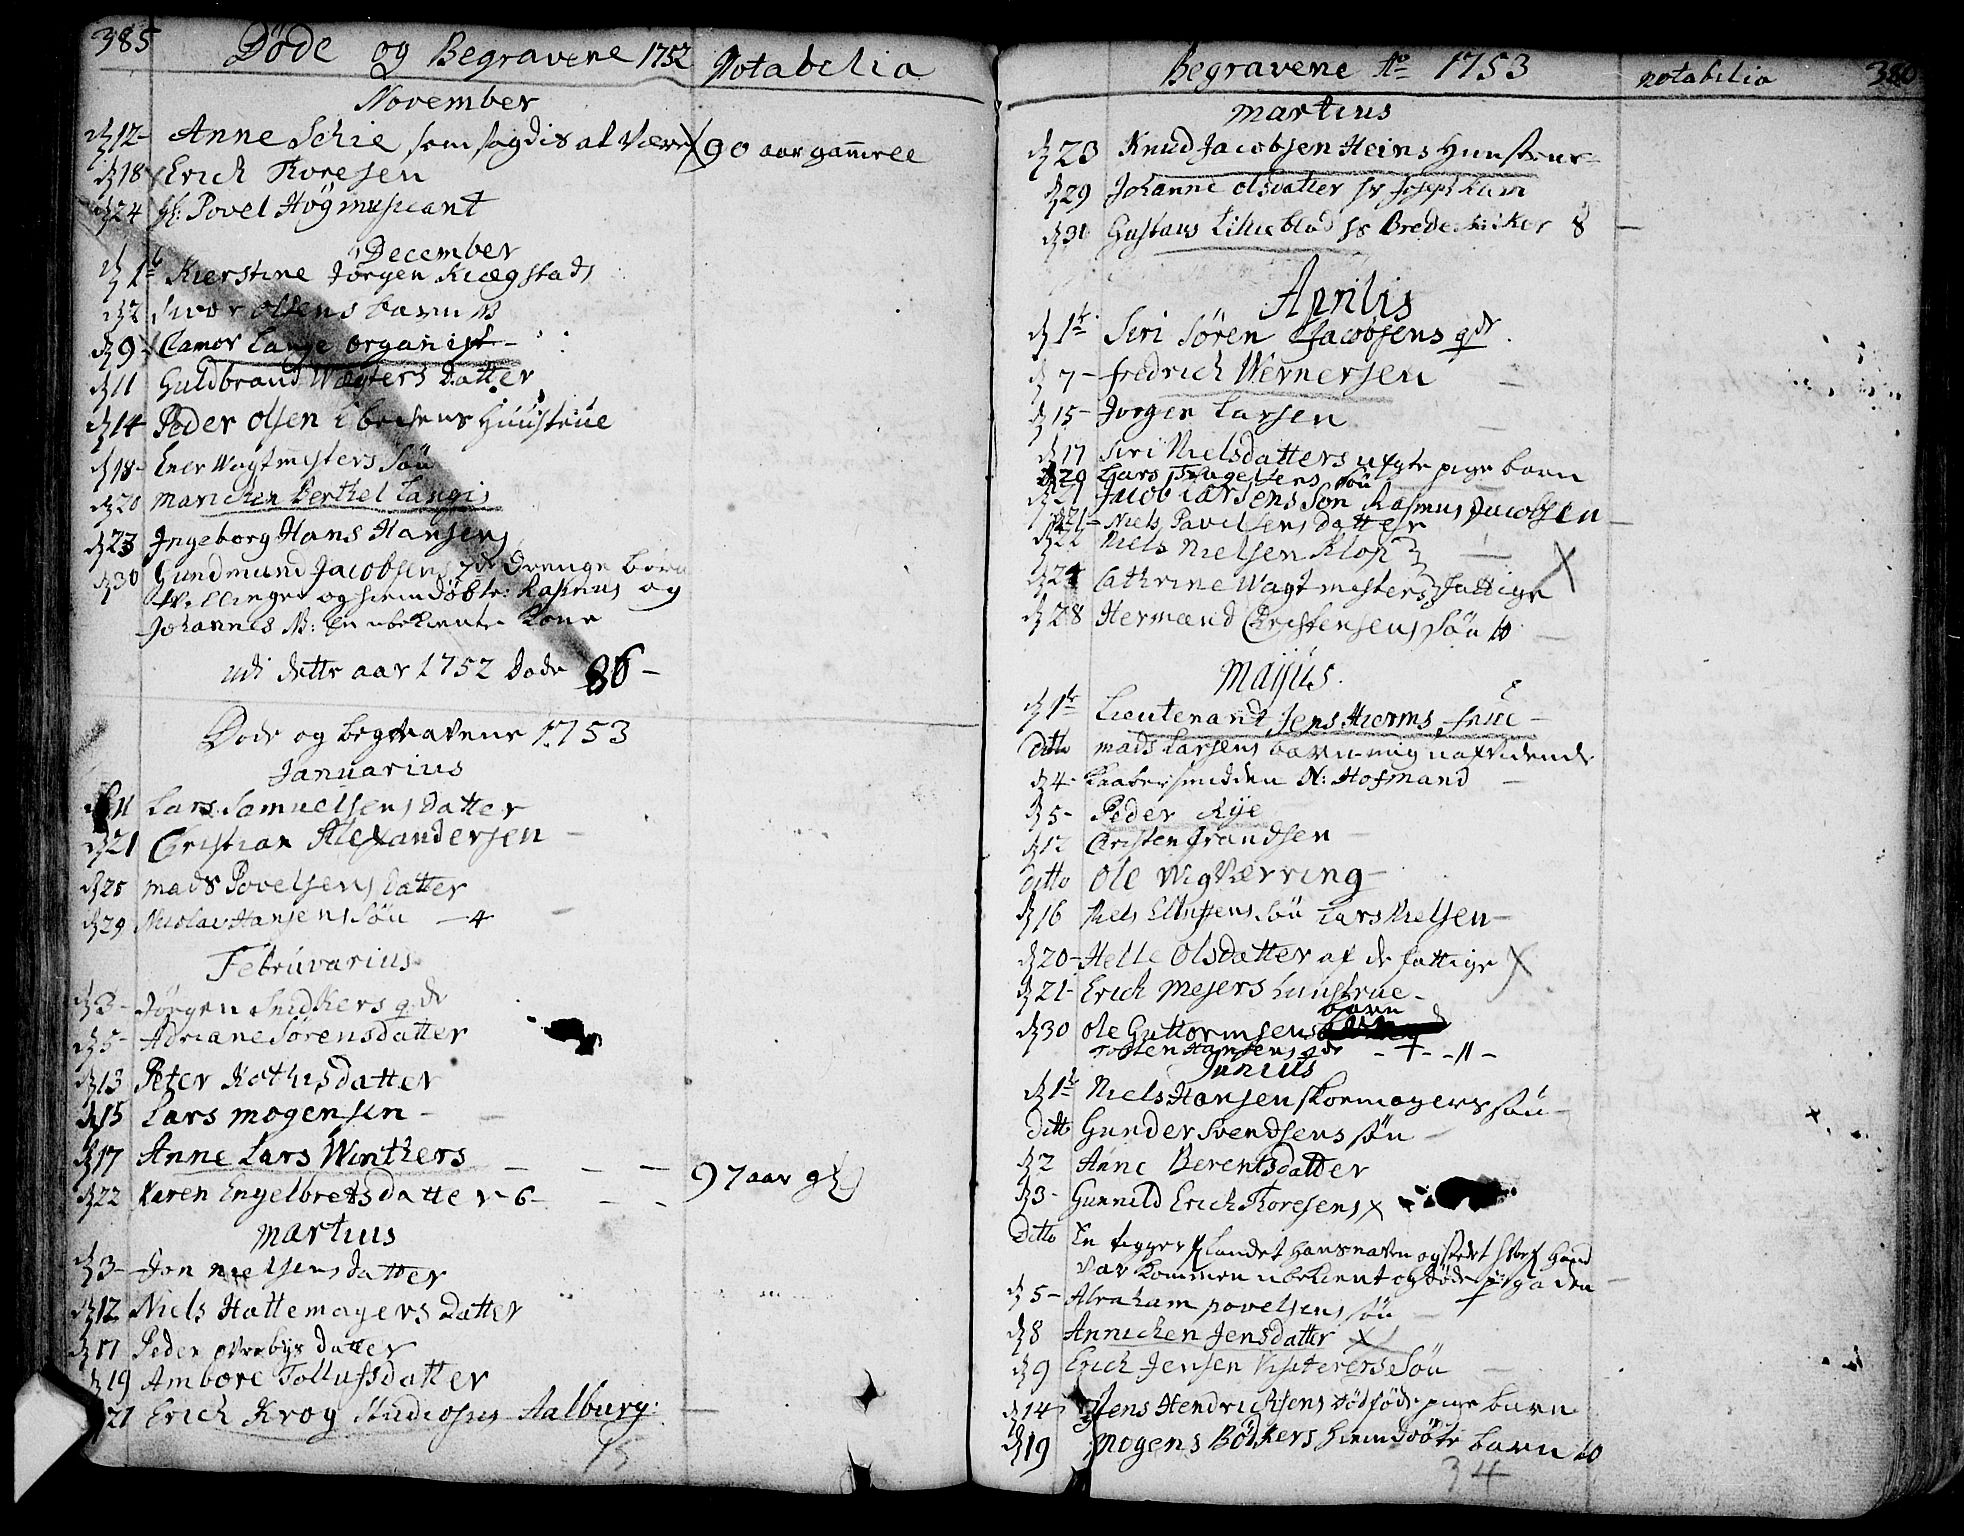 385
Döde og Begravene 1752
Notabilia
November
d 12- Anne Schie som sagdis at være 90 aar gamele
d 18 Erich Thoresen
d 24 Povel Högmusicant
December
d 1te Kierstine Jørgen Kiægstads
d 2 Siver Olsens barn 13
d 9- Camor Lange organist -
d 11 Guldbrand Wægters Datter
d 14 Peder Olsen Huustrue
d 18- Ener Wagtmesters Sön
d 20 Marichen Berthel Langis
d 23 Ingeborg Hans Hansens
d 30 Gundmund Jacobsens 2de Drenge börn
tvillinger og hiemdöbte: Rasmus og
Johannes N: En ubekiente Kone
udi dette aar 1752 Døde 86-
Døde og begravene 1753
Januarius
d 11 Lars Samuelsens datter
d 21 Christian Alexandersen -
d 25 Mads Povelsens datter
d 29 Nicolai Hansens sön - 4
Februvarius
d 3- Jörgen Snidkers gde
d 5- Adriane Sörensdatter
d 13 Peter Kathisdatter
d 15 Lars Mogensen -
d 17 Anne Lars Winthers - - - 97 aar gl
d 22 Karen Engelbretsdatter - 6 - - -
Martius
d 3- Jon Nielsens datter
d 12 Niels Hattemagers Datter
d 17 Peder Overbys Datter
d 19 Ambore Tollufsdatter
21 Erich Krog Studiosus Aalburg: -
15
Begravene Ao 1753
notabilia
386
Martius
d 23 Knud Jacobsen Heins Hunstrue
d 29 Johanne Olsdatter
d 31 Gustavs Lillieblad 8 -
Aprilis
d 1te Siri Sören Jacobsens gde.
d 7- Fredrich Wernersen
d 15- Jørgen Larsen
d 17 Siri Nielsdatters uegte pige barn
d 20 Lars Engelsens sön
d 21 Jacob Larsens Søn Rasmus Jacobsen -
d 21- Niels Pavelsens datter
d 22 Niels Nielsen Klop
d 24 Cathrine Wagtmesters fattige X
d 28 Hermand Christensens Sön 10 -
Maijus.
d 1te Lieutenant Jens Hierms frue -
Ditto Mads Larsens barn mig uafvidende
d 4- Kaabersmidden N: Hofmand -
d 5- Peder Rye
d 12 Christen Frandsen -
ditto Ole Wigværring -
d 16 Niels Sön Lars Nielsen -
d 20- Helle Olsdatter af de fattige X
d 21- Erich Mejers huustrue -
d 30 Ole Guttormsens barn
Torsten Hansens gde - + - - 11 -
Junius
d 1te Niels Hansen Skormagers sön -
Ditto Gunder Svendsens sön -
d 2 Anne Berentsdatter
d 3- Gunnild Erich Thoresens x
Ditto En tigger
var kommen ubekient og døde paa gaden -
d 5- Abraham Povelsens sön -
d 8 Annichen Jensdatter X
d 9 Erich Jensen Visiterers Sön -
d 14 Jens Hendrichsens dödföde pige barn
d 19 Mogens Bödkers hiemdöbte barn 10
34